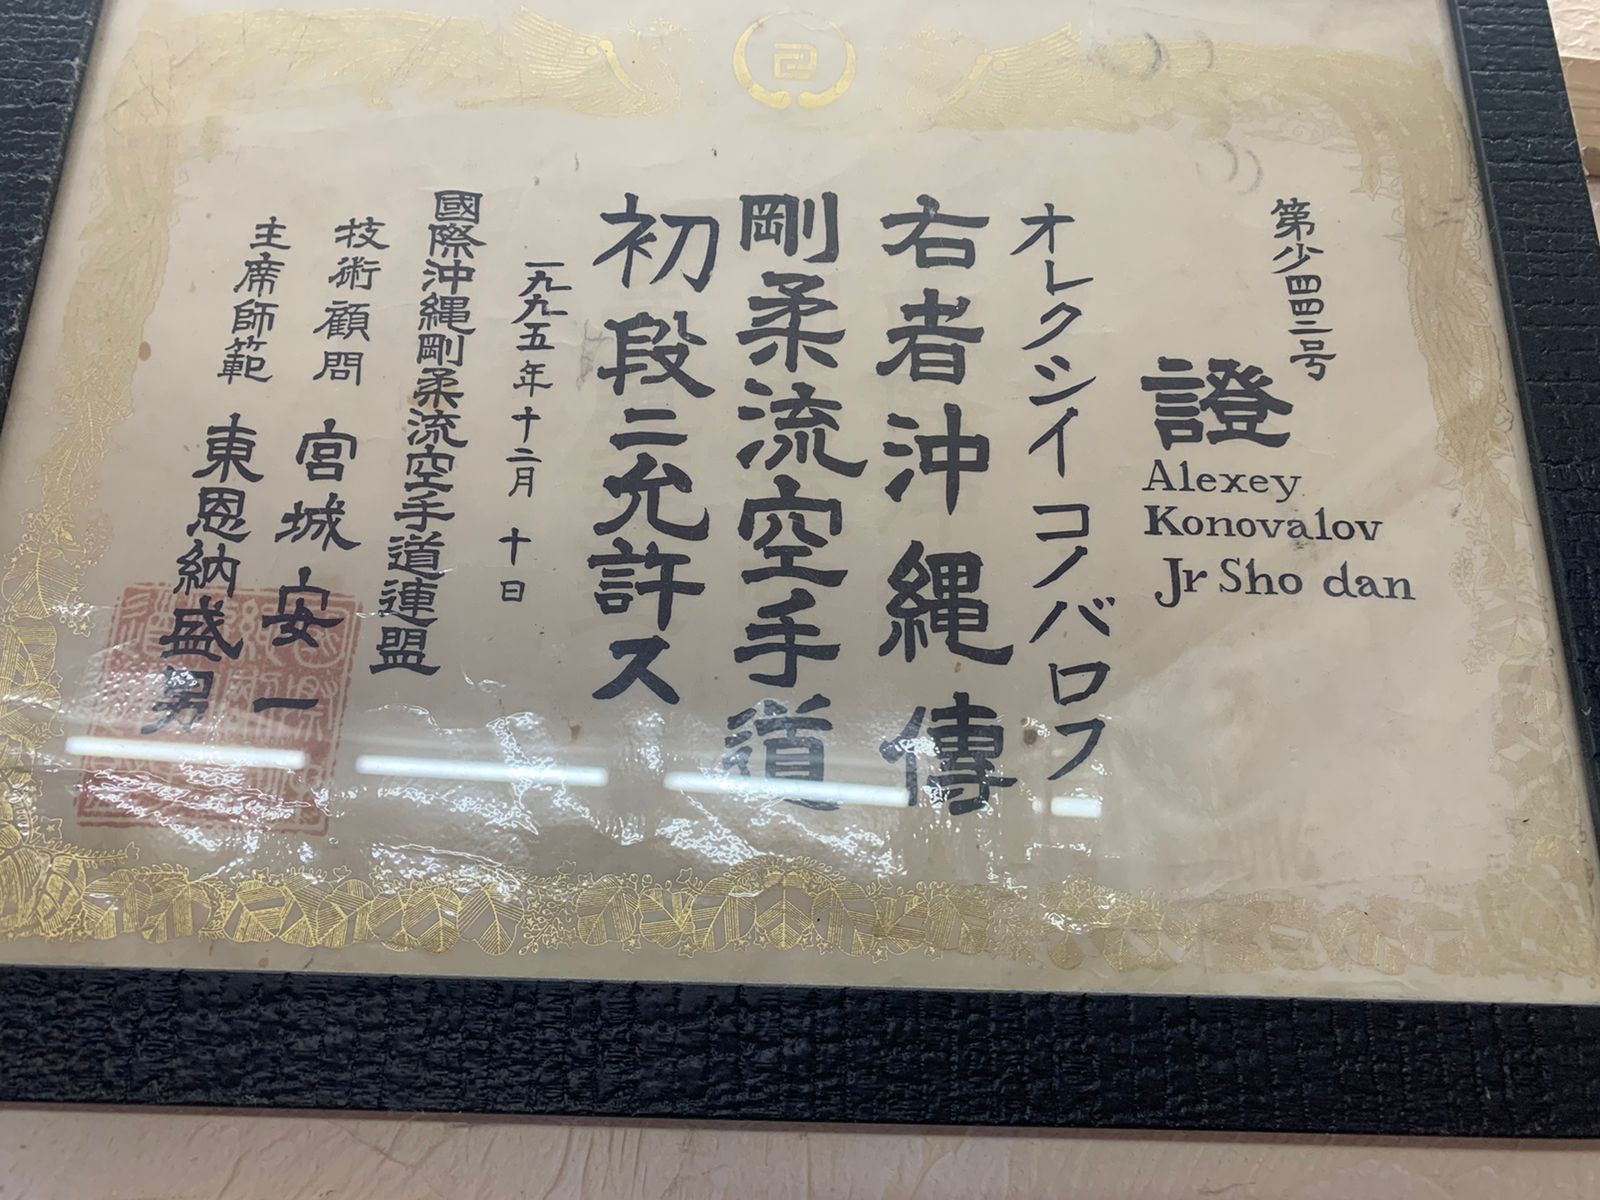 第少四四二号
證
Alexey
Konovalov
Jr Sho dan
オレクシイ コノバロフ
右者沖縄傳
剛柔流空手道
初段ニ允許ス
一九九五年十二月 十日
國際沖縄剛柔流空手道連盟
技術顧問 宮城安一
主席師範 東恩納盛男